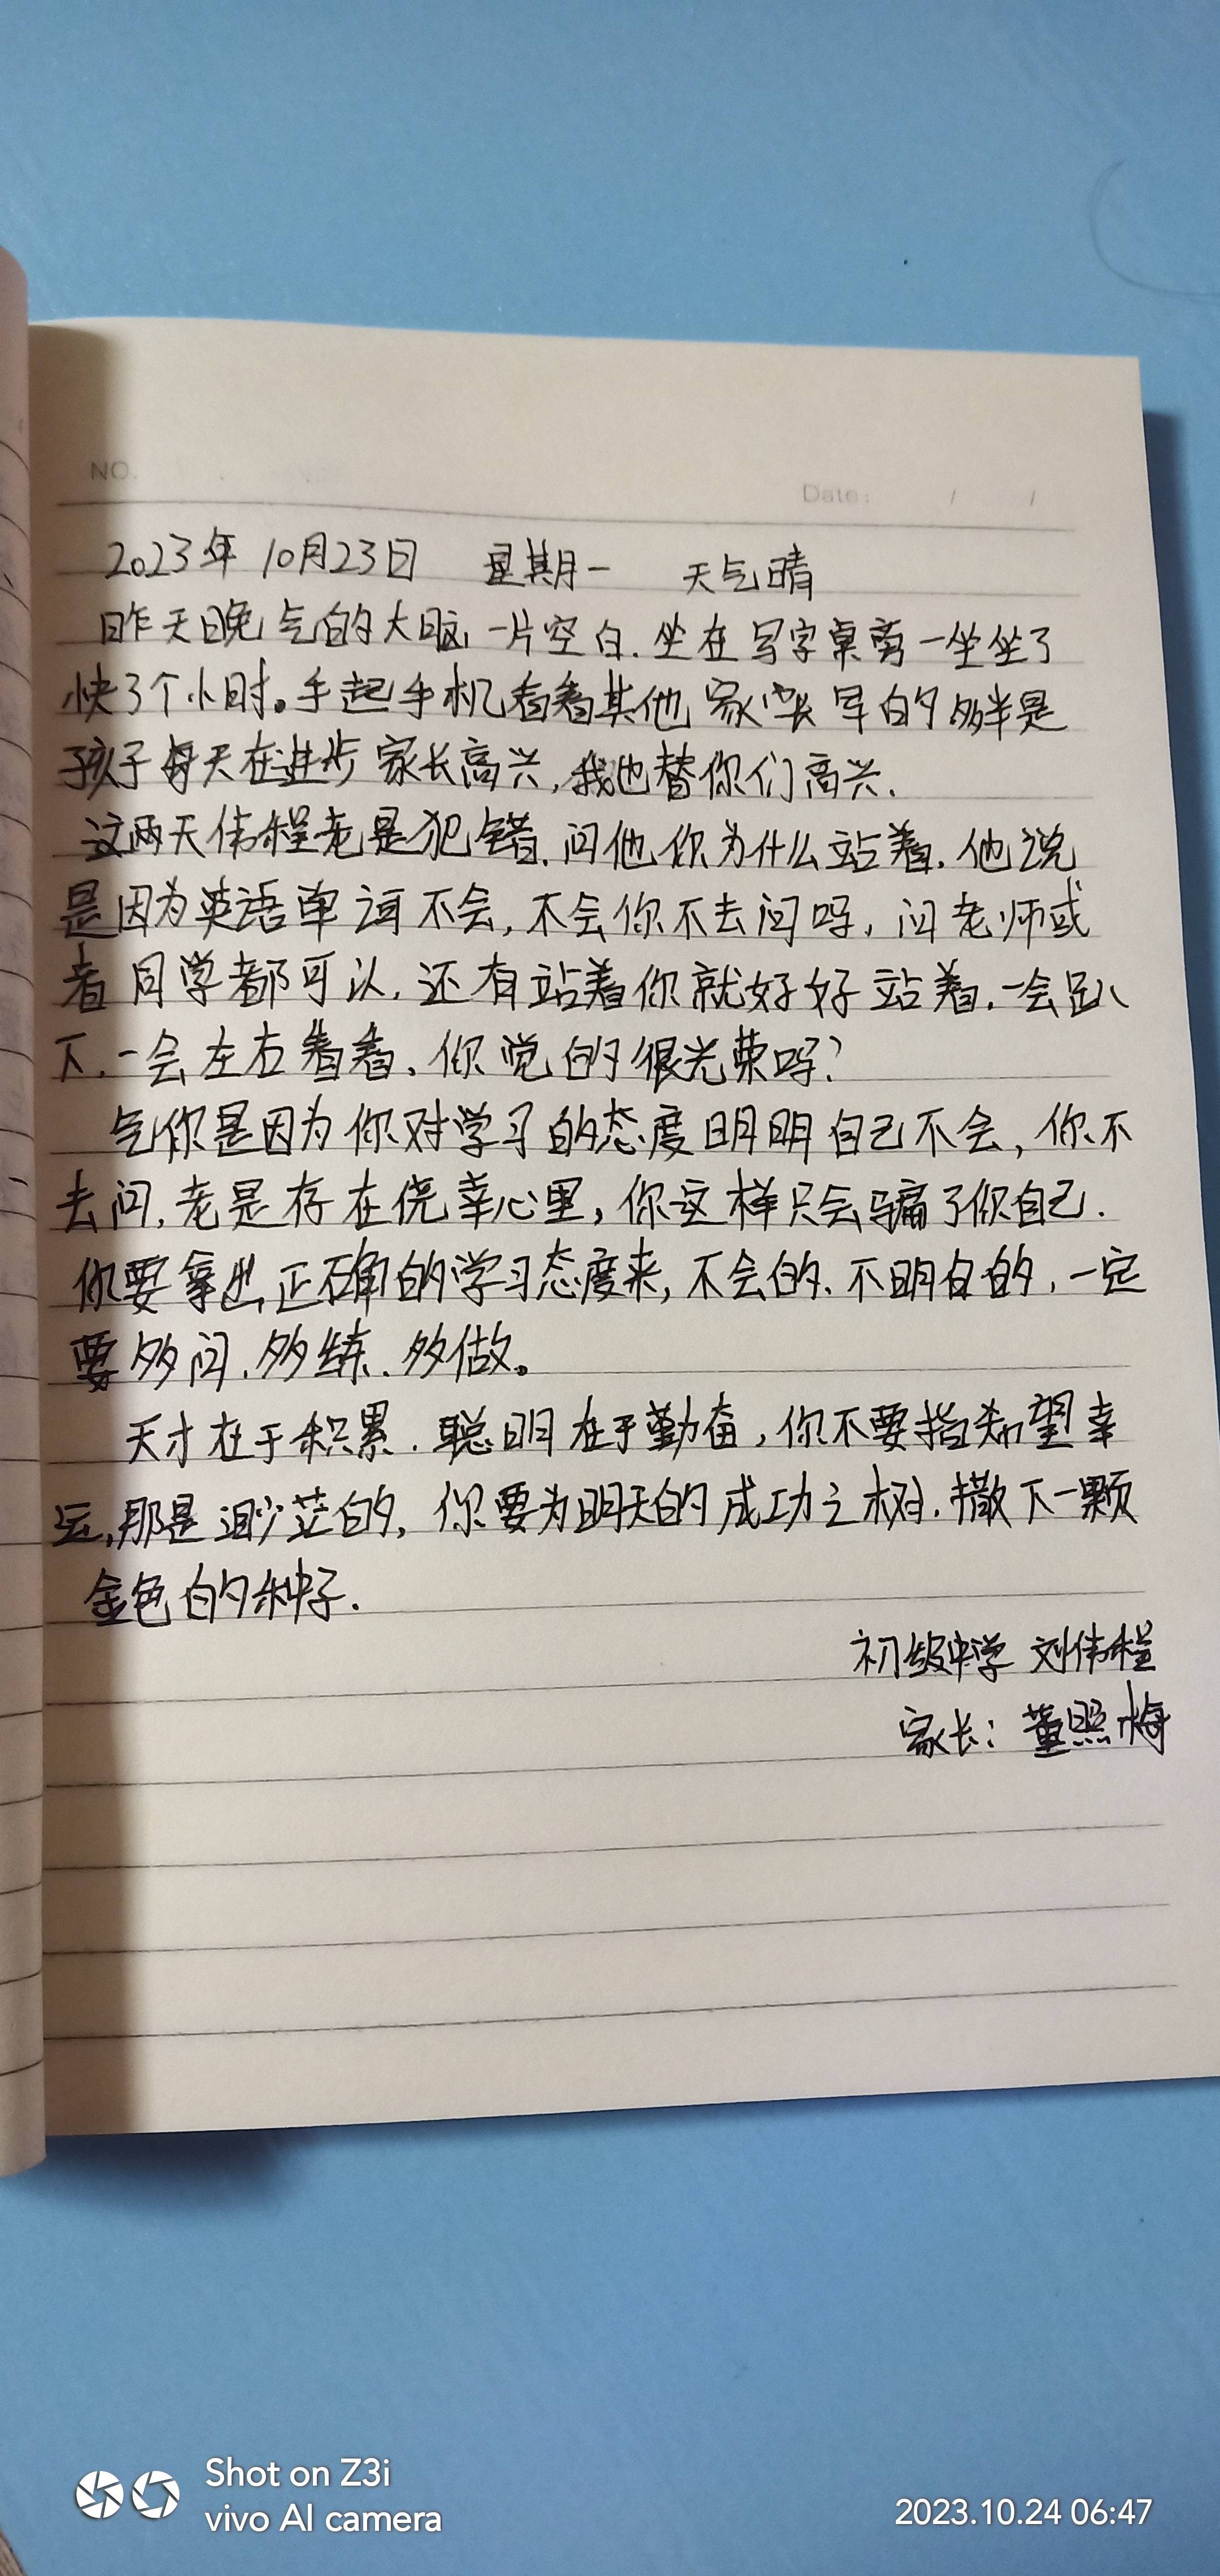 NO.
Date: / /
2023年 10月23日 星期一 天气晴
昨天晚气的大脑一片空白.坐在写字桌旁一坐坐了
快3个小时。手起手机看着其他家长写的多半是
孩子每天在进步家长高兴,我也替你们高兴.
这两天伟程老是犯错.问他你为什么站着.他说
是因为英语单词不会,不会你不去问吗,问老师或
者同学都可以.还有站着你就好好站着.一会趴
下.一会左右看看.你觉的很光荣吗?
气你是因为你对学习的态度明明自己不会,你不
去问.老是存在侥幸心里,你这样只会骗了你自己.
你要拿出正确的学习态度来,不会的.不明白的.一定
要多问.多练.多做。
天才在于积累.聪明在于勤奋,你不要指望幸
运,那是渺茫的,你要为明天的成功之树.撒下一颗
金色的种子.
初级中学 刘伟程
家长:董照梅
Shot on Z3i
vivo AI camera
2023.10.24 06:47